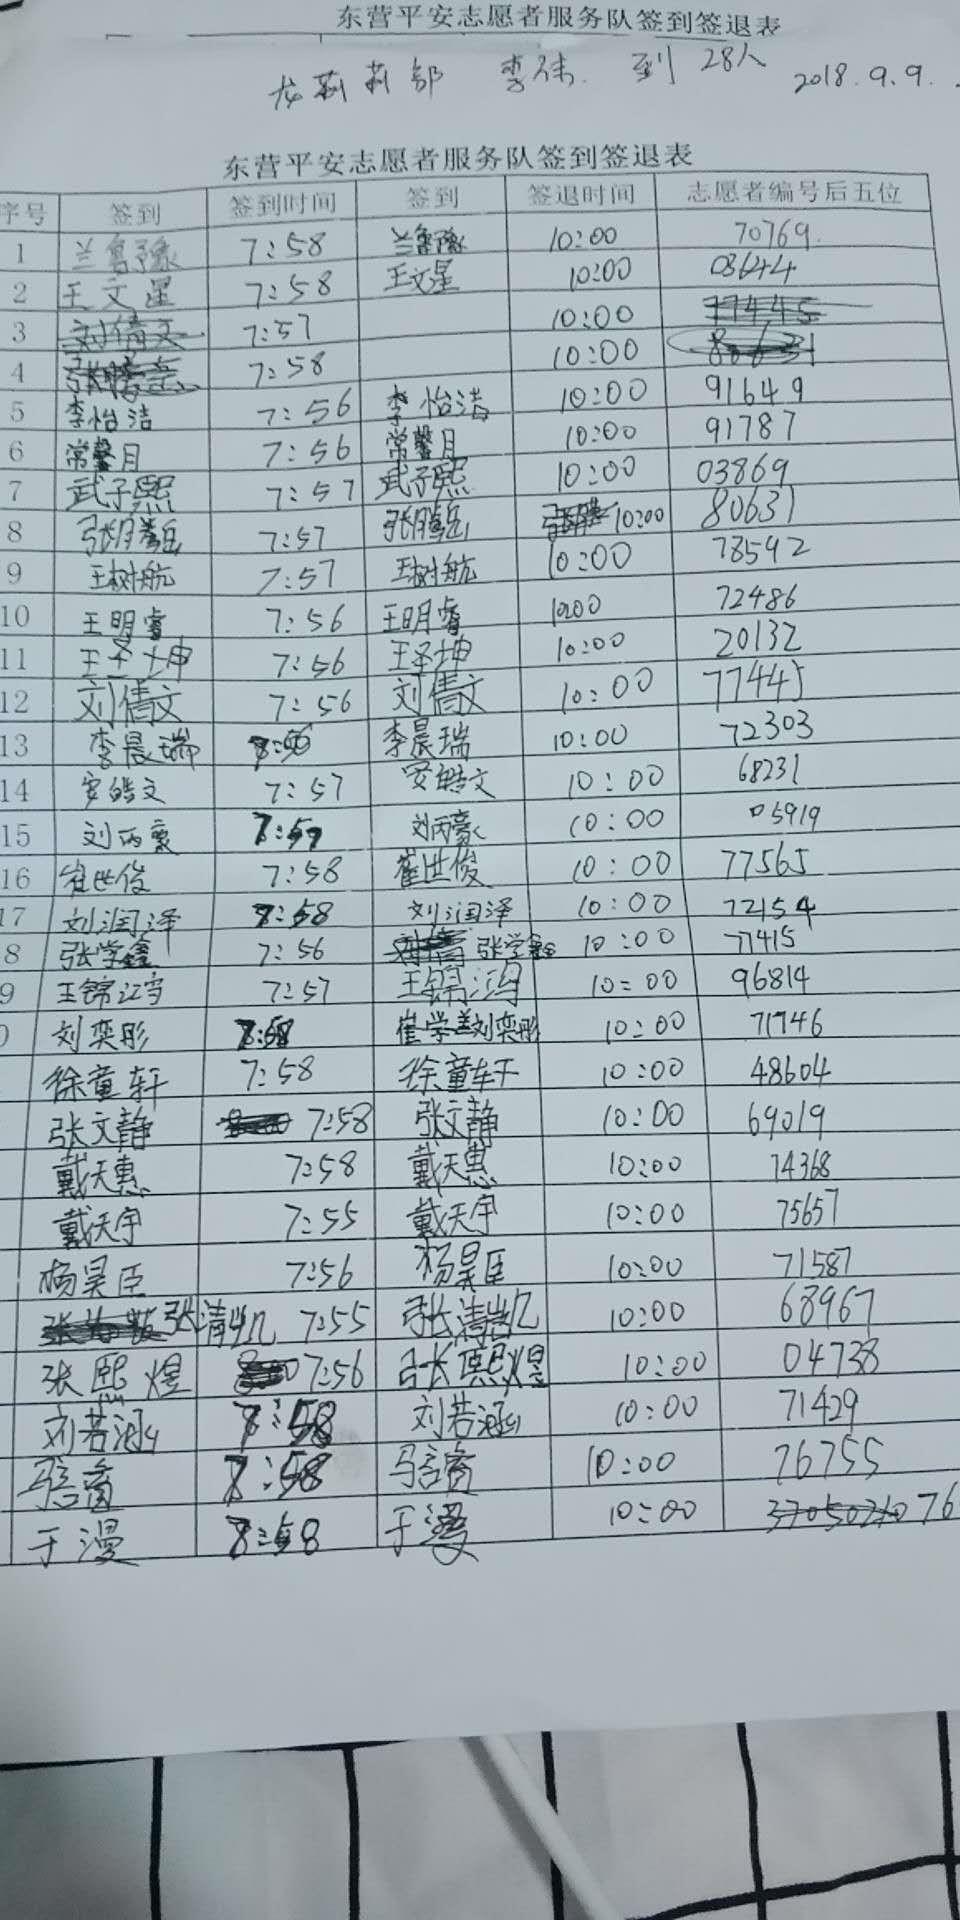 东营平安志愿者服务队签到签退表
龙莉莉部 李伟. 到 28人 2018.9.9.
东营平安志愿者服务队签到签退表
序号 签到 签到时间 签到 签退时间 志愿者编号后五位
1 兰鲁豫 7:58 兰鲁豫 10:00 70769
2 王文星 7:58 王文星 10:00 08644
3 刘倩文 7:57 10:00 77445
4 7:58 10:00 80631
5 李怡洁 7:56 李怡洁 10:00 91649
6 常馨月 7:56 常馨月 10:00 91787
7 武子熙 7:57 武子熙 10:00 03869
8 张腾岳 7:57 张腾岳 10:00 80631
9 王树航 7:57 王树航 10:00 78592
10 王明睿 7:56 王明睿 10:00 72486
11 王圣坤 7:56 王圣坤 10:00 20132
12 刘倩文 7:56 刘倩文 10:00 77445
13 李晨瑞 7:56 李晨瑞 10:00 72303
14 安皓文 7:57 安皓文 10:00 68231
15 刘丙豪 7:57 刘丙豪 10:00 05919
16 崔世俊 7:58 崔世俊 10:00 77565
17 刘润泽 7:58 刘润泽 10:00 72154
8 张学鑫 7:56 张学鑫 10:00 77415
9 王锦鸿 7:57 王锦鸿 10:00 96814
0 刘奕彤 7:58 刘奕彤 10:00 71746
徐童轩 7:58 徐童轩 10:00 48604
张文静 7:58 张文静 10:00 69019
戴天惠 7:58 戴天惠 10:00 74368
戴天宇 7:55 戴天宇 10:00 75657
杨昊臣 7:56 杨昊臣 10:00 71587
张清凯 7:55 张清凯 10:00 68967
张熙煜 7:56 张熙煜 10:00 04738
刘若涵 7:58 刘若涵 10:00 71429
马言斋 7:58 马言斋 10:00 76755
于漫 7:58 于漫 10:00 37050210 76